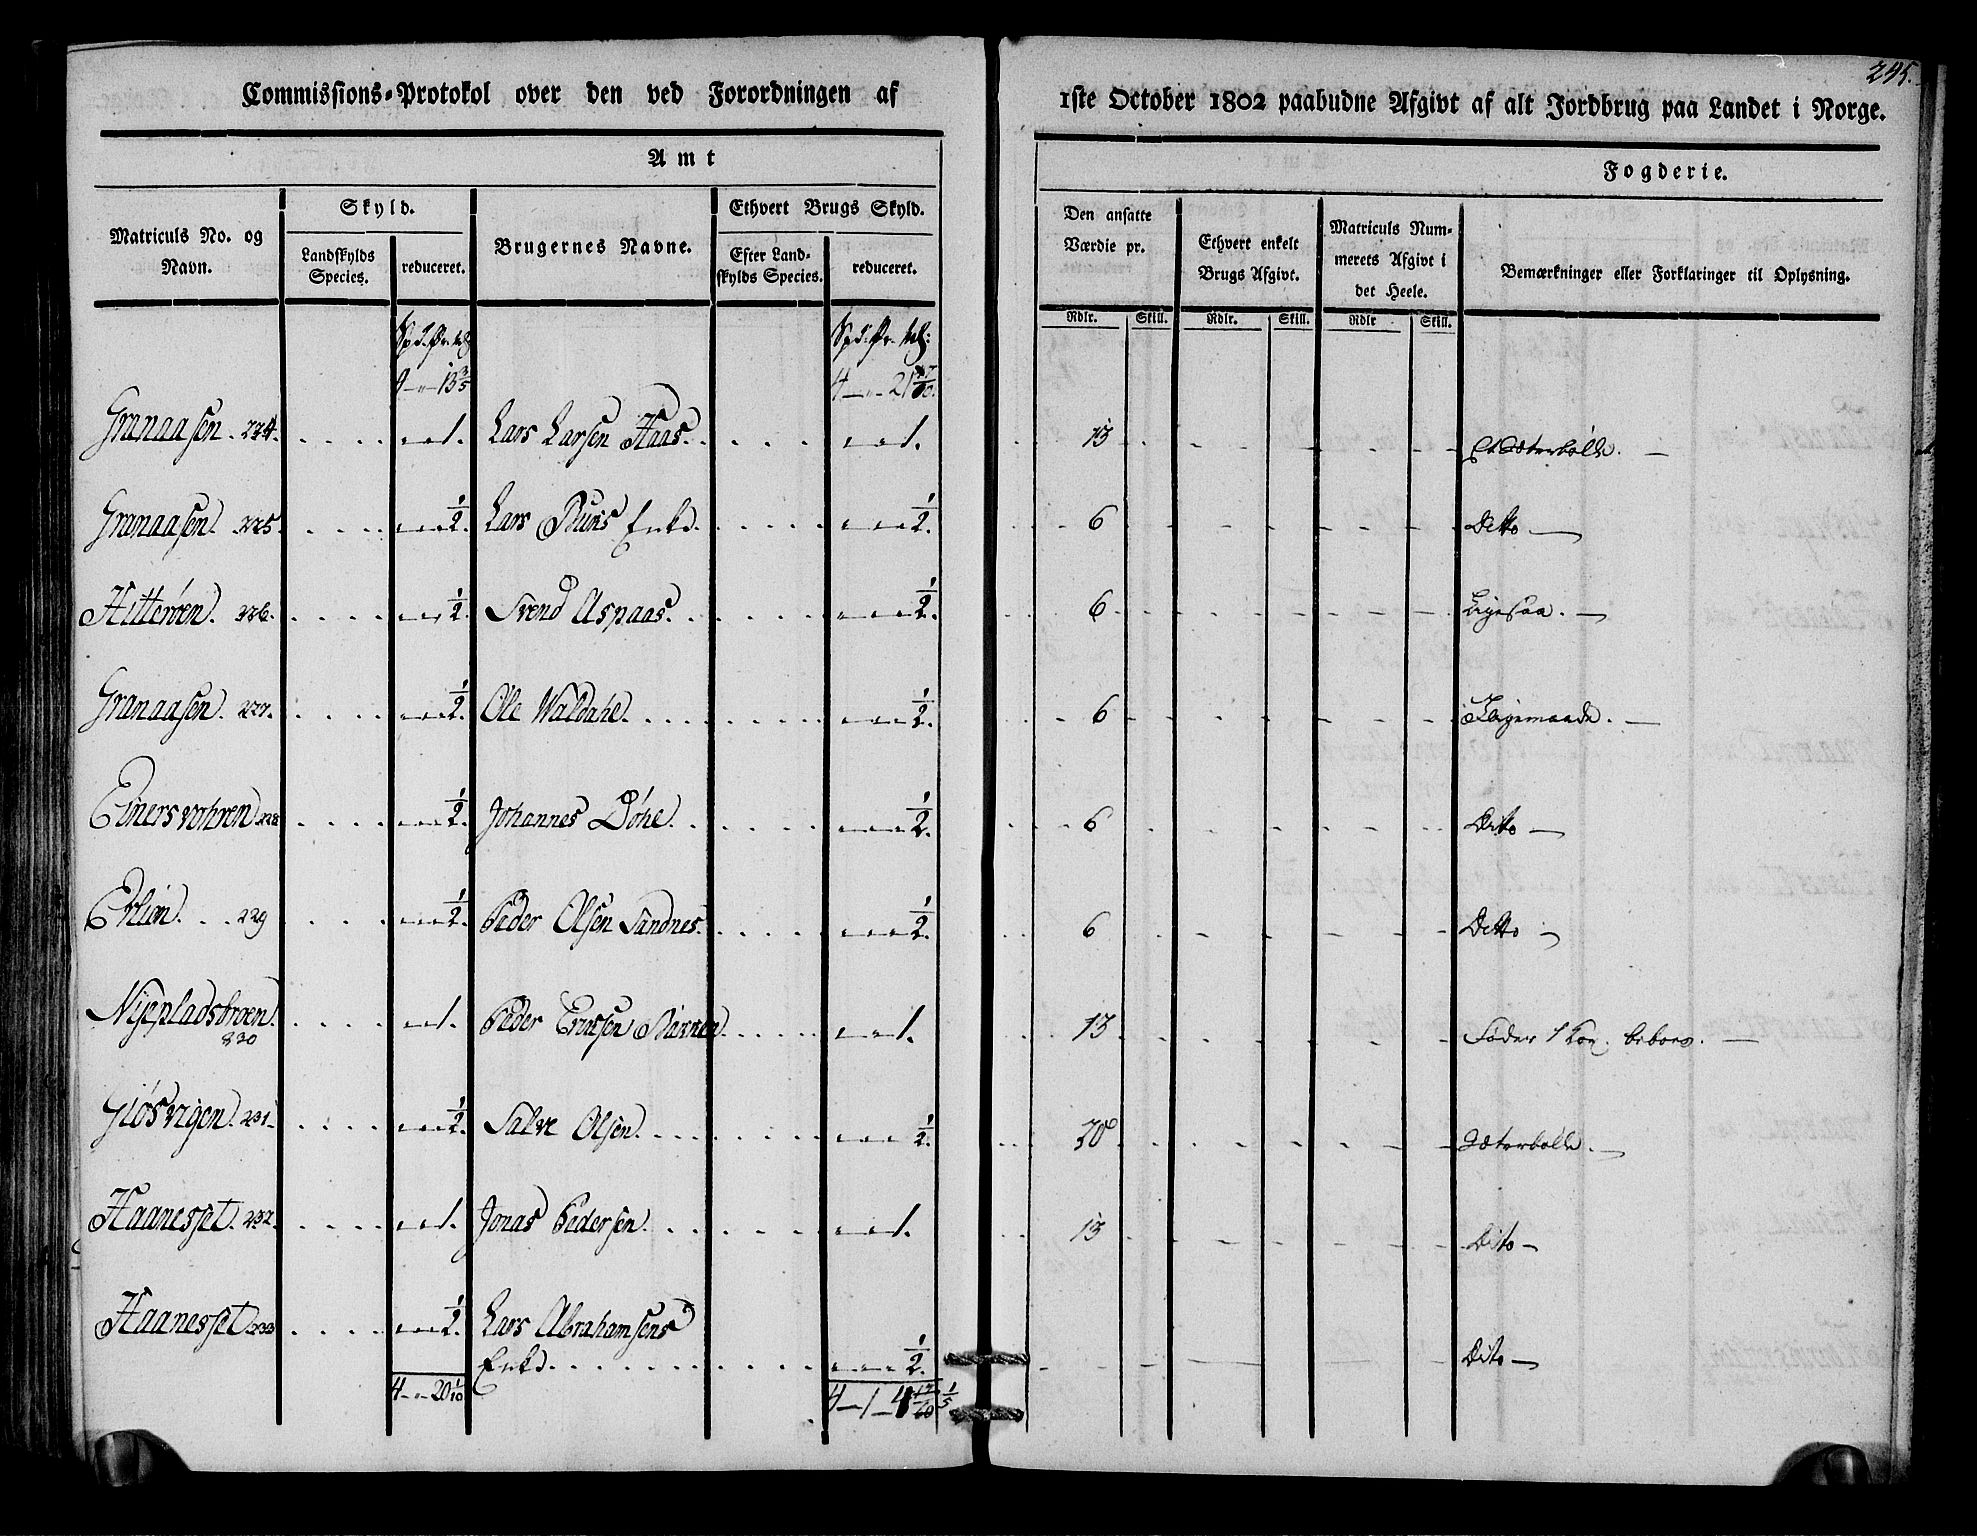 Commissions-Protokol over den ved Forordningen af
1ste October 1802 paabudne Afgivt af alt Jordbrug paa Landet i Norge.
245.
Amt
Fogderie.
Matriculs No. og Navn.
Skyld.
Landskylds Species.
reduceret.
Brugernes Navne.
Ethvert Brugs Skyld.
Efter Landskylds Species.
reduceret.
Den ansatte Værdie pr.
Ethvert enkelt Brugs Afgivt.
Matriculs Nummerets Afgivt i det Heele.
Bemærkninger eller Forklaringer til Oplysning.
Rdlr. Skill. Rdlr. Skill. Rdlr Skill.
Granaasen. 224. 1. Lars Larsen Haas. 1. 13
Granaasen. 225. 1/2. Lars Enke. 1/2. 6 Ditto
Hitterøen. 226. 1/2. Svend Aspaas. 1/2. 6 Ligesaa.
Granaasen. 227. 1/2. Ole Waldahl. 1/2. 6 Ligemaade.
Einersvohren 228 1/2. Johannes Døhl. 1/2. 6 Ditto
Erlien. 229 1/2. Peder Olsen Sandnes. 1/2. 6 Ditto
Nyepladsbroen. 1. Peder 1. 13 Føder 1 Koe.
830
Giøsvigen. 231. 1/2. Salve Olsen. 1/2. 20
Haanesset. 232. 1. Jonas Pedersen. 1. 13 Dito
Haanesset 233 1/2. Lars Abrahamsens
Enke. 1/2. Dito
4 " 20 1/10 4 1 4